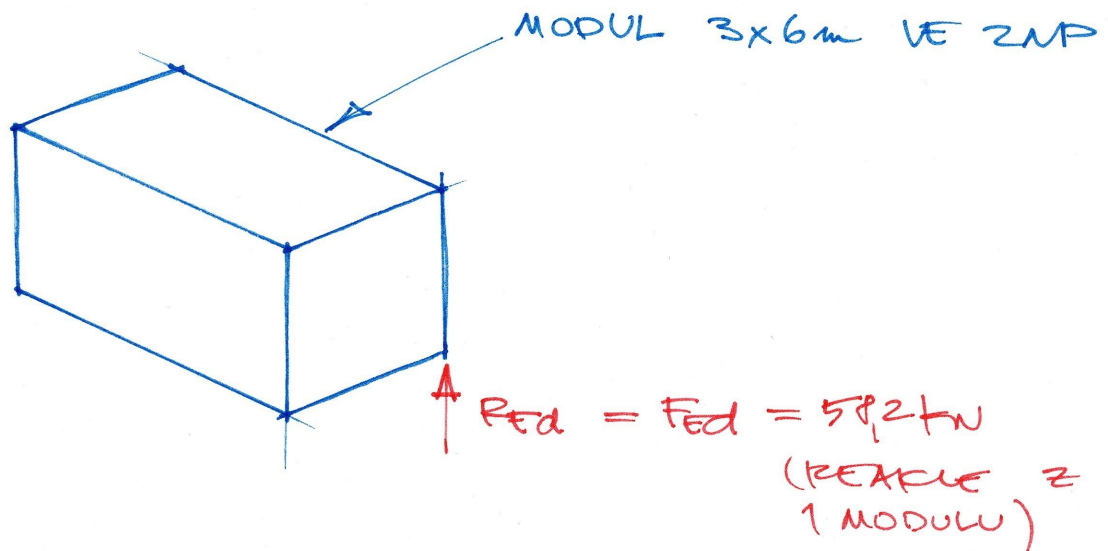 MODUL 3x6m VE 2NP
REd = FEd = 58,2 kN
(REAKCE Z
1 MODULU)